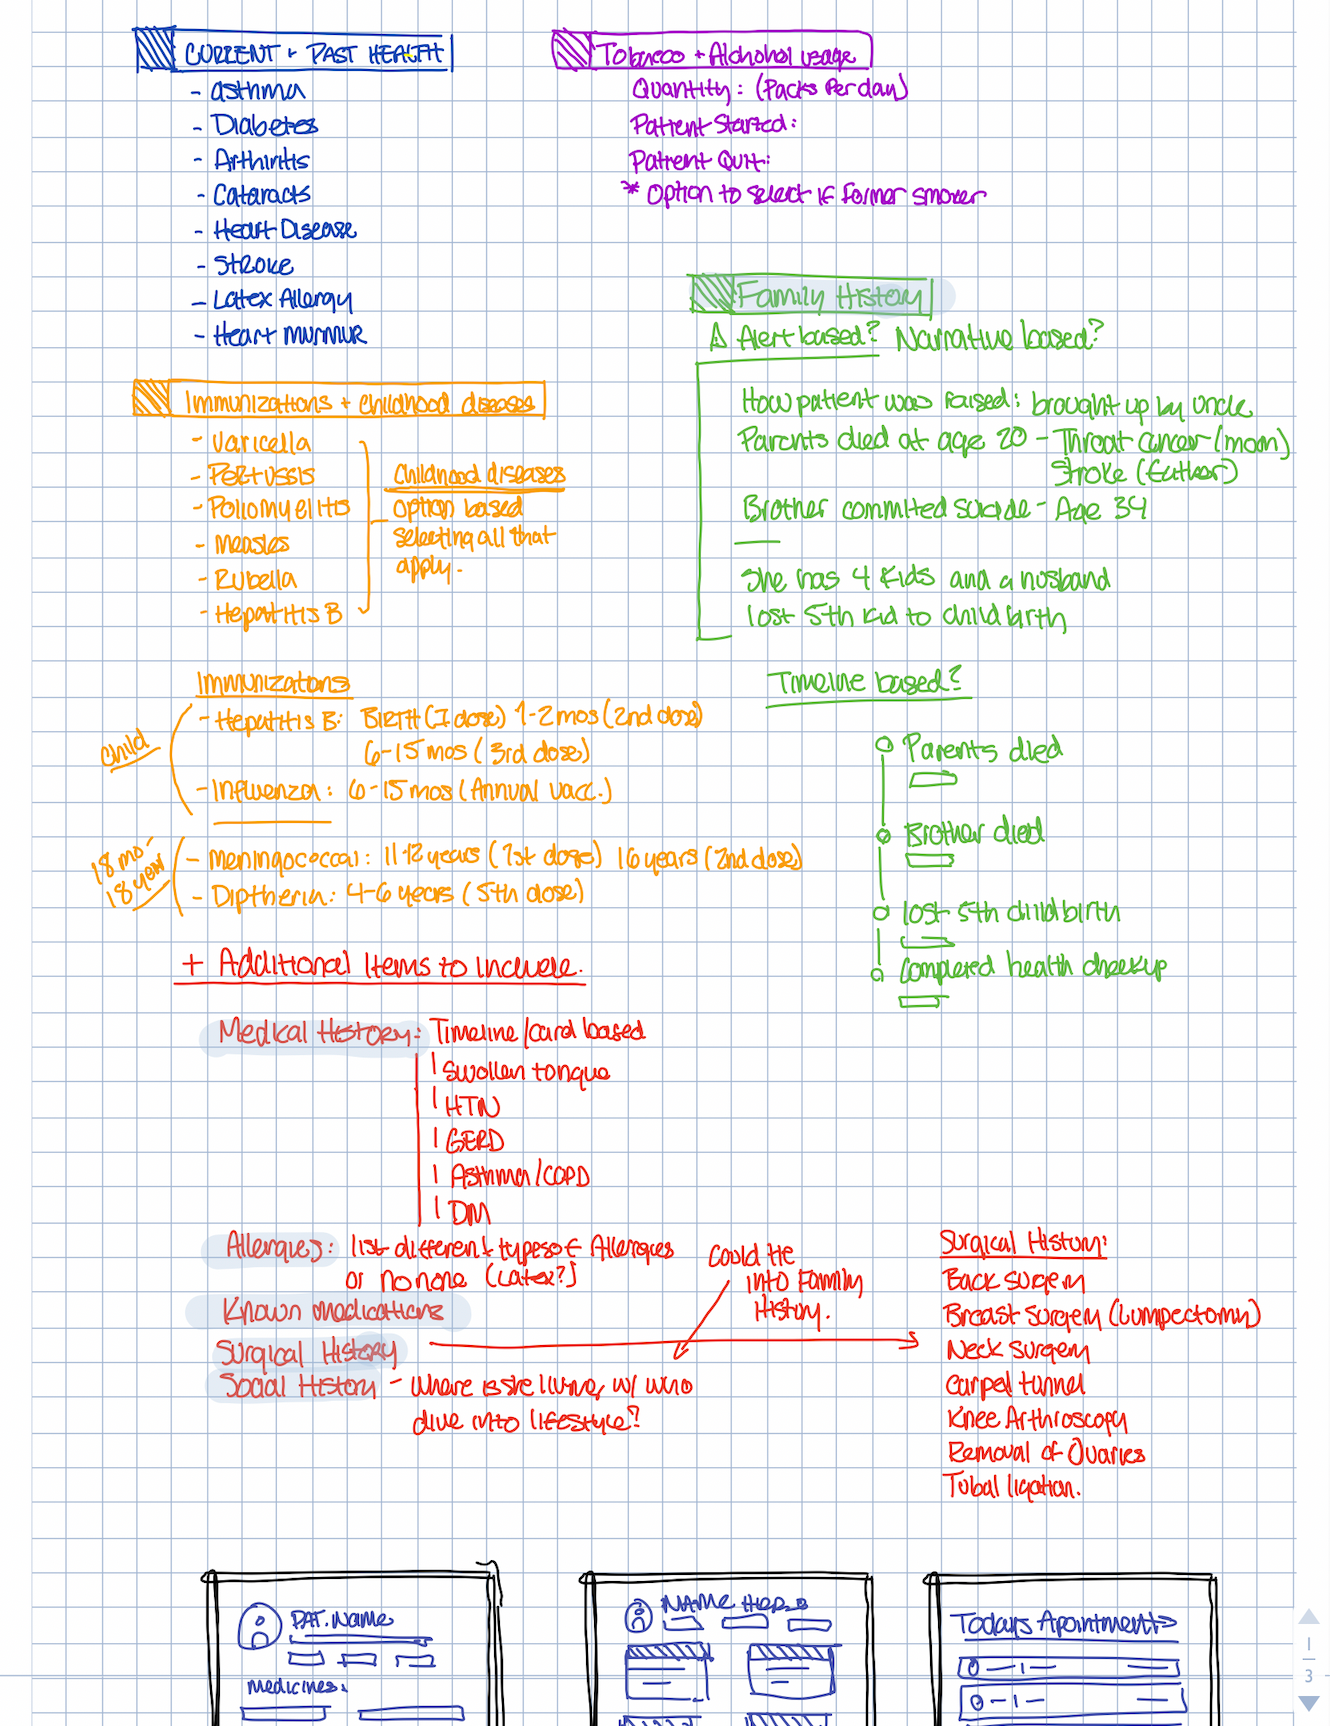 CURRENT + PAST HEALTH
- asthma
- Diabetes
- Arthiritis
- Cataracts
- Heart Disease
- Stroke
- Latex Allergy
- Heart murmur
Tobacco + Alchohol usage
Quantity: (Packs Per day)
Patient Started:
Patient Quit:
* Option to select if former smoker
Family History
Alert based? Narrative based?
How patient was raised: brought up by uncle
Parents died at age 20 - Throat cancer (mom)
Stroke (father)
Brother commited suicide - Age 34
She has 4 kids and a husband
lost 5th kid to childbirth
Immunizations + childhood diseases
- Varicella
- Pertussis
- Poliomyelitis
- Measles
- Rubella
- Hepatitis B
Childhood diseases
option based
selecting all that
apply.
Immunizations
child
- Hepatitis B: BIRTH (1 dose) 1-2 mos (2nd dose)
6-15 mos (3rd dose)
- Influenza: 6-15 mos (Annual vacc.)
18 mo -
18 year
- Meningococcal: 11-12 years (1st dose) 16 years (2nd dose)
- Diptheria: 4-6 years (5th dose)
Timeline based?
Parents died
Brother died
lost 5th childbirth
Completed health checkup
+ Additional Items to include.
Medical History: Timeline/card based
Swollen tongue
HTN
GERD
Asthma/COPD
DM
Allergies: list different types of Allergies
or no none (Latex?)
Known medications
Surgical History
Social History - Where is she living, w/ who
dive into lifestyle?
Could tie
into Family
History.
Surgical History:
Back surgery
Breast surgery (Lumpectomy)
Neck surgery
Carpel tunnel
Knee Arthroscopy
Removal of Ovaries
Tubal ligation.
PAT. Name
medicines:
NAME
Todays Apointments
1
3